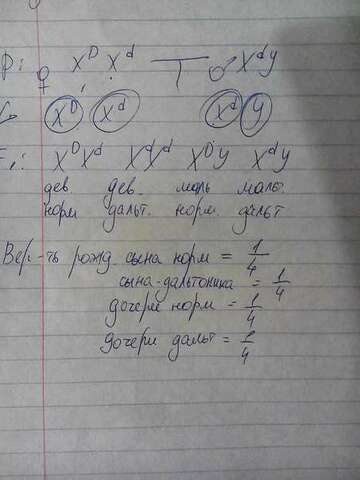 P: ♀ X^D X^d — ♂ X^d Y
G X^D X^d X^d Y
F₁: X^D X^d X^d X^d X^D Y X^d Y
дев. дев. маль мальч.
норм дальт. норм. дальт
Вер-ть рожд. сына норм = 1/4
сына-дальтоника = 1/4
дочери норм = 1/4
дочери дальт = 1/4